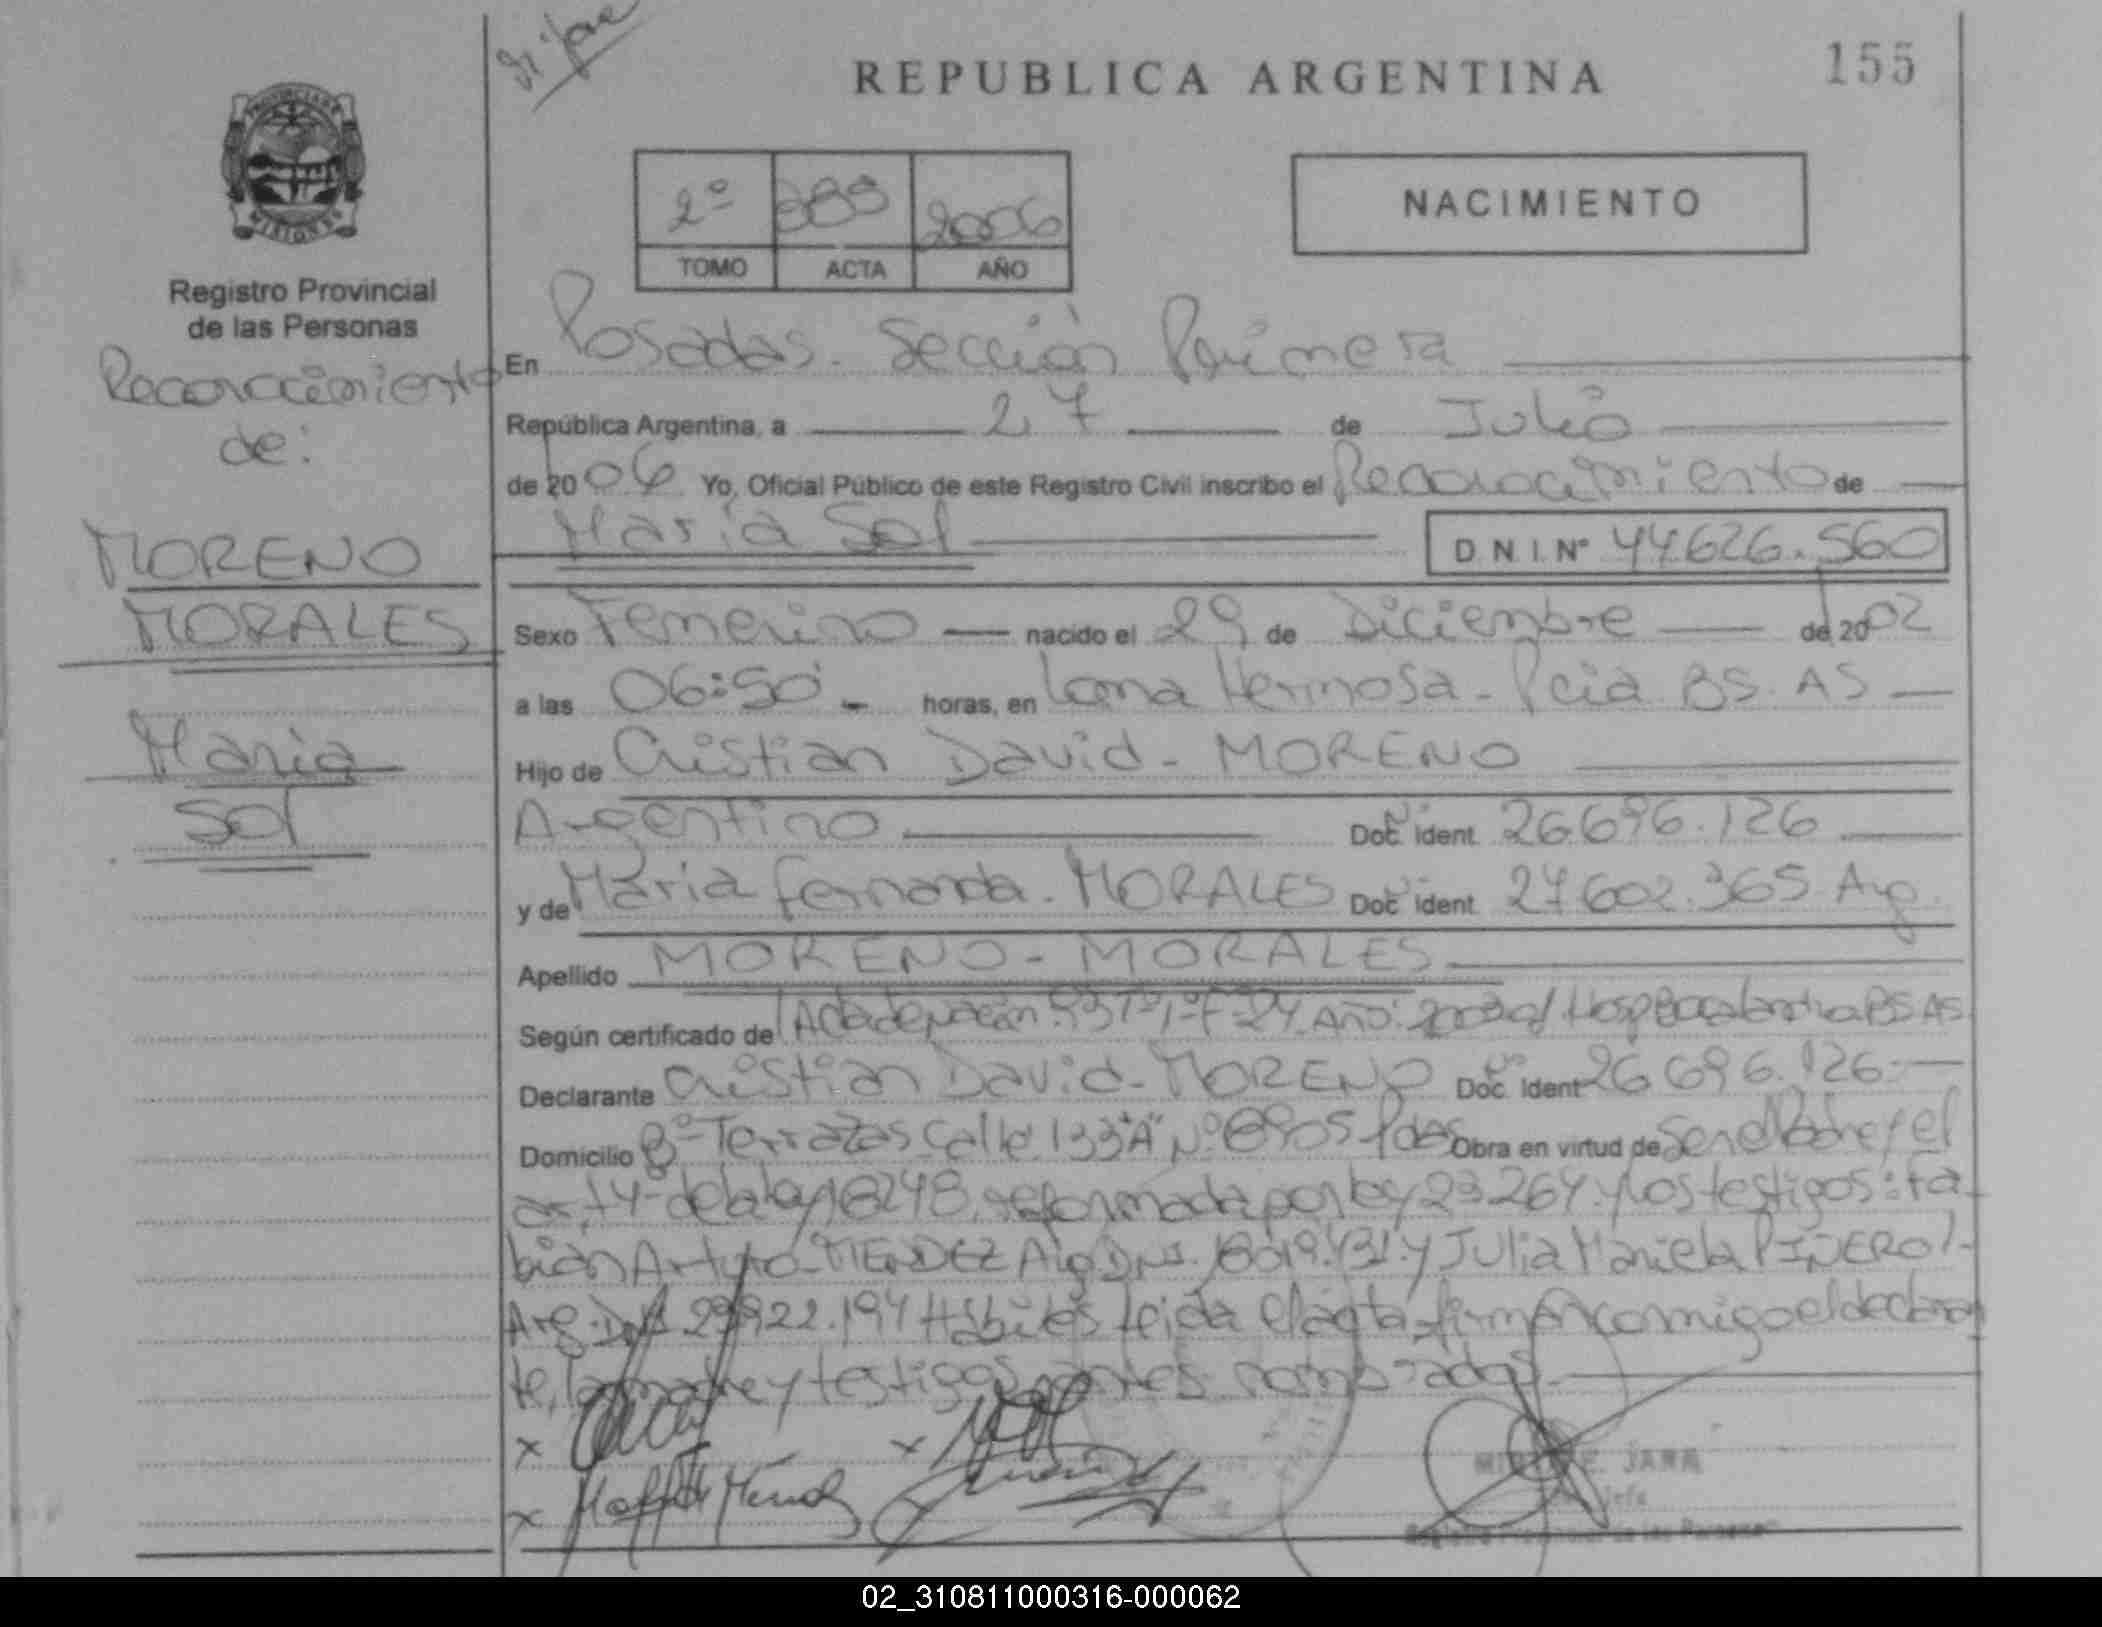 155
REPUBLICA ARGENTINA
PROVINCIA DE
MISIONES
Registro Provincial
de las Personas
2º 2006
TOMO ACTA AÑO
NACIMIENTO
Reconocimiento
de:
MORENO
MORALES
Maria
Sol
En Posadas. Sección Primera
República Argentina, a 27 de Julio
de 2006 Yo, Oficial Público de este Registro Civil inscribo el Reconocimiento de
Maria Sol D.N.I.Nº 44.626.560
Sexo Femenino nacido el 29 de Diciembre de 2002
a las 06:50 horas, en Loma Hermosa - Pcia BS. AS
Hijo de Cristian David - MORENO
Argentino Doc. Ident. 26.696.126
y de Maria Fernanda. MORALES Doc. Ident. 27.602.365 Arg.
Apellido MORENO - MORALES
Según certificado de Acta de Nacim. Tº 1º F-24 Año: BS AS
Declarante Cristian David - MORENO Doc. Ident. 26.696.126
Domicilio Bº Terrazas Calle 133"A" Nº 6905 Pdas Obra en virtud de Ser el Padre y el
art. 4º de la ley 18248, reformada por ley 23.264. y los testigos: Fa-
bian Arturo MENDEZ Arg DNI. y Julia Mariela PIÑERO
Arg. DNI Hábiles leida el acta, firman conmigo el declaran
te, la madre y testigos antes nombrados.
JARA
Jefe
Registro Provincial de las Personas
02_310811000316-000062